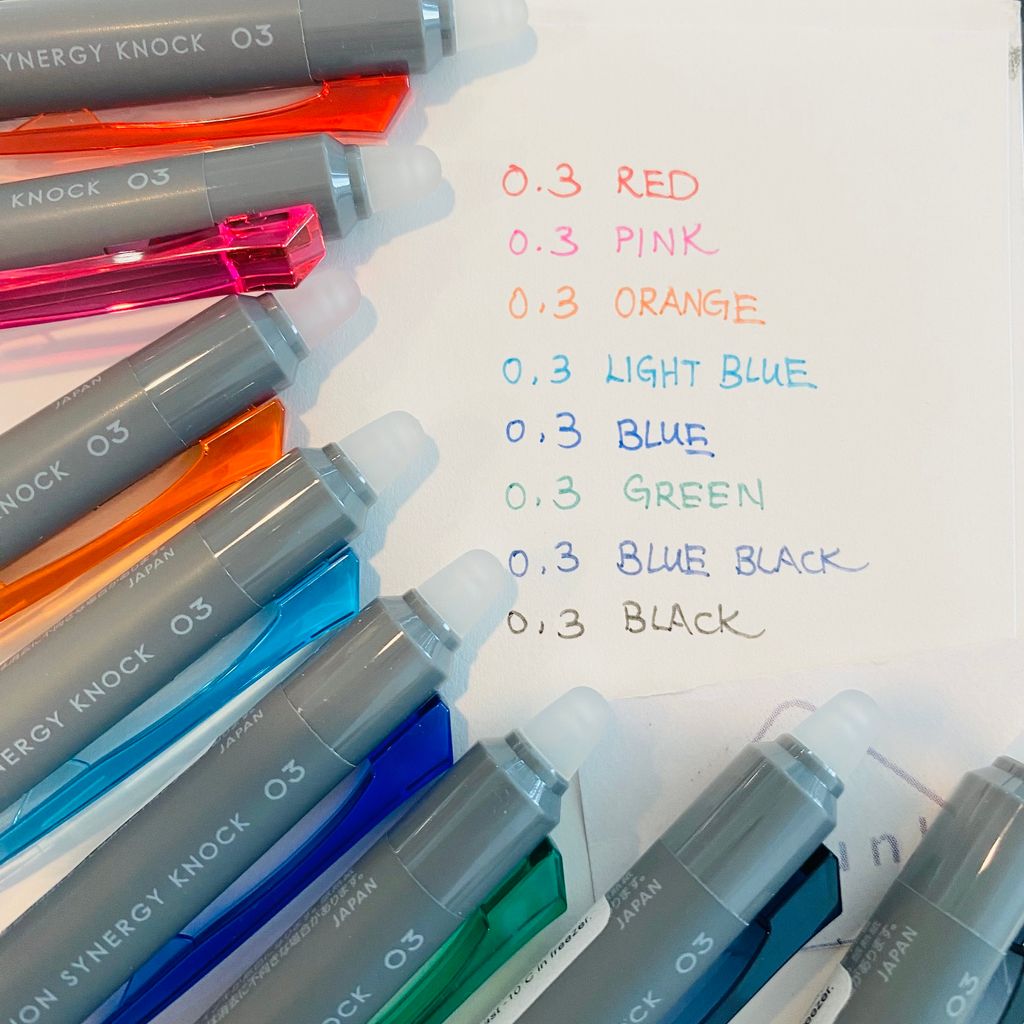 YNERGY KNOCK 03
KNOCK 03
JAPAN
NOCK 03
JAPAN
NERGY KNOCK 03
JAPAN
ION SYNERGY KNOCK 03
0.3 RED
0.3 PINK
0.3 ORANGE
0.3 LIGHT BLUE
0.3 BLUE
0.3 GREEN
0.3 BLUE BLACK
0.3 BLACK
JAPAN
OCK 03
-10°C in freezer.
JAPAN
CK 03
freezer.
JAPAN
03